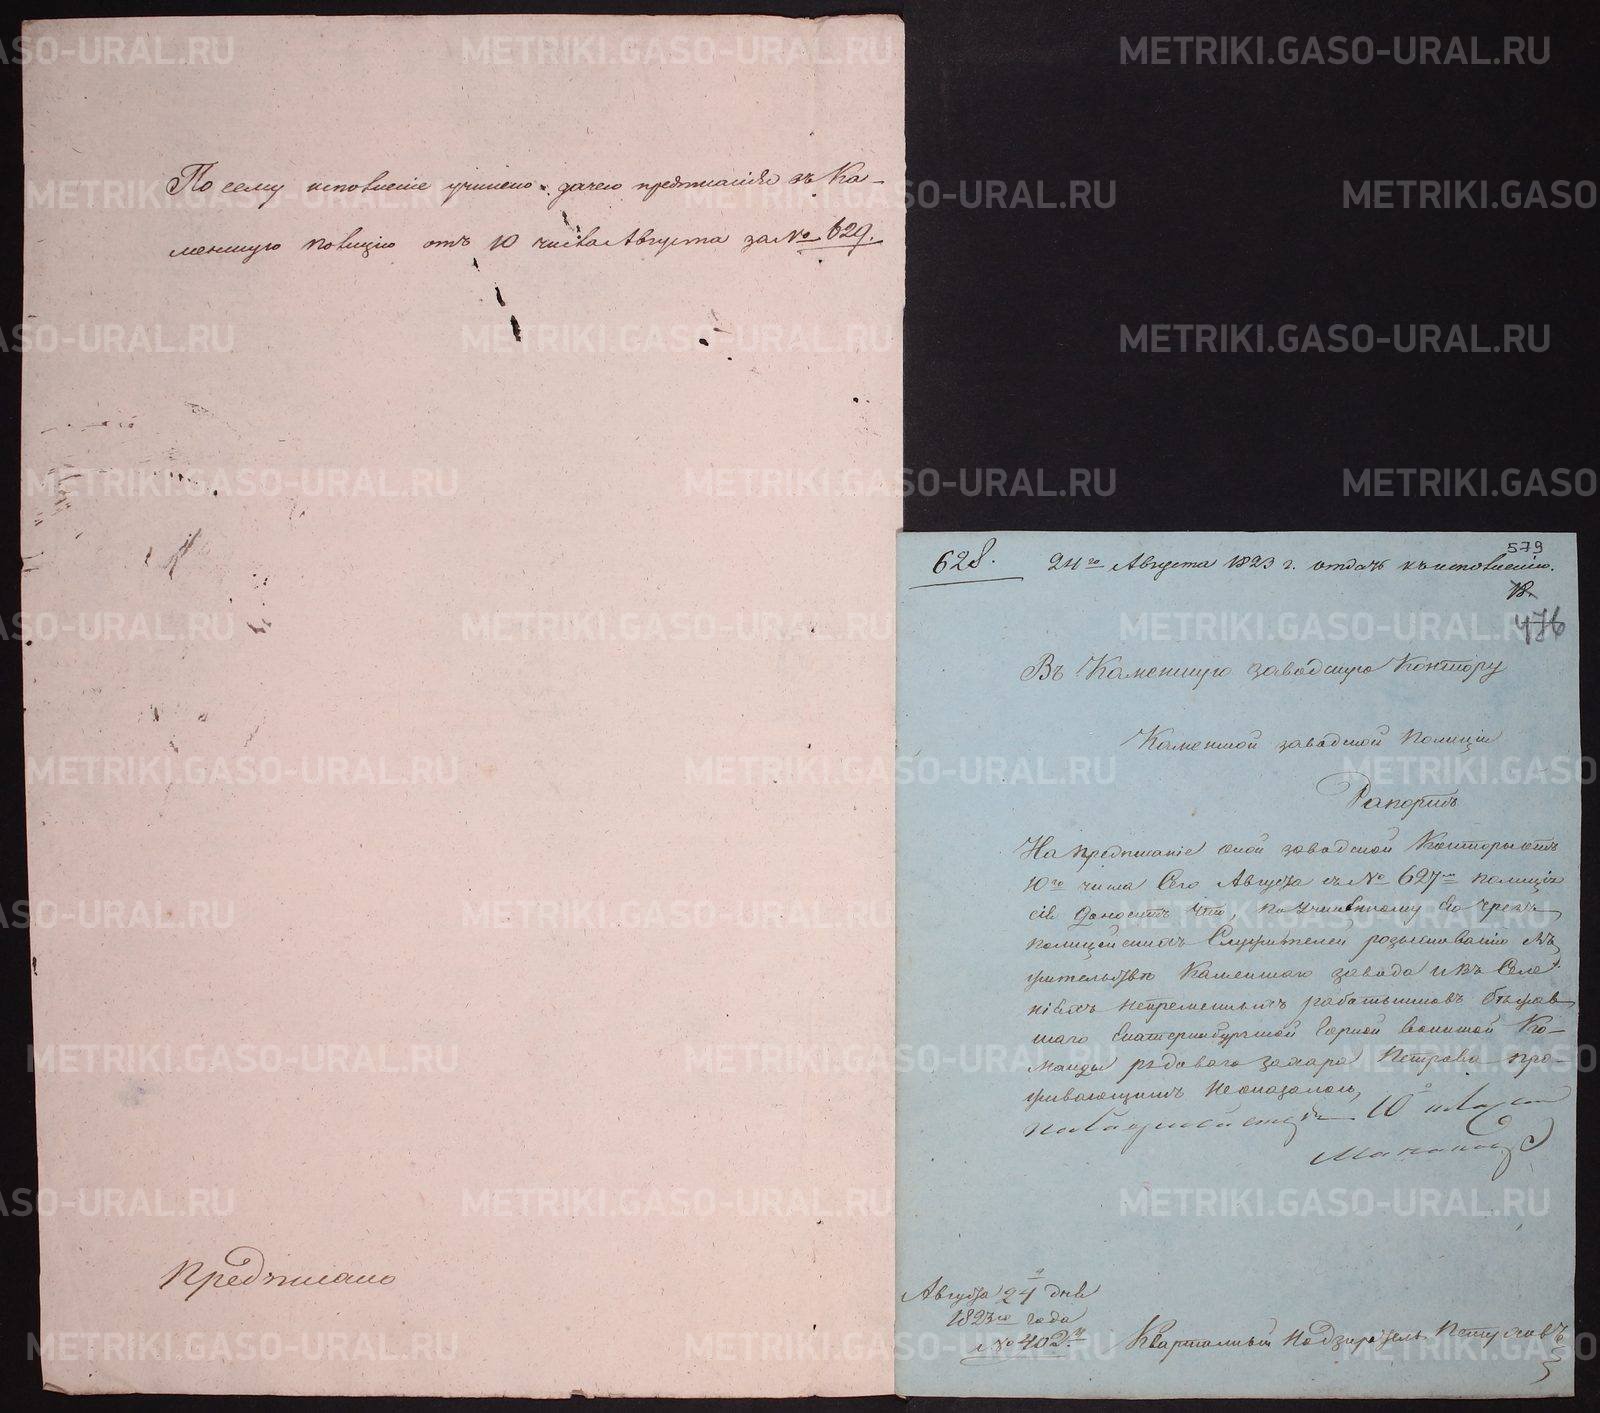 По сему исполненіе учинено дачею предписанія въ Ка-
менскую полицію отъ 10 числа Августа за № 629.
Предписано
628.
24го Августа 1823 г. отдать къ исполненію.
579
18.
476
Въ Каменскую заводскую Контору
Каменской заводской Полиціи
Рапортъ
На предписаніе оной заводской Конторы отъ
10го числа Сего Августа съ № 627мъ полиція
сія Доноситъ что, по Учиненному Ею чрезъ
полицейскихъ Служителей розыскиванію въ
жительствѣ Каменскаго завода и въ Селе-
ніяхъ непременныхъ работниковъ бѣжав
шаго Екатеринбургской Горной военной Ко-
манды рядоваго Захара Петрова про-
живающимъ неоказалось,
Августа 24 дня
1823го года
№ 402й
Квартальный Надзиратель Петуховъ
METRIKI.GASO-URAL.RU